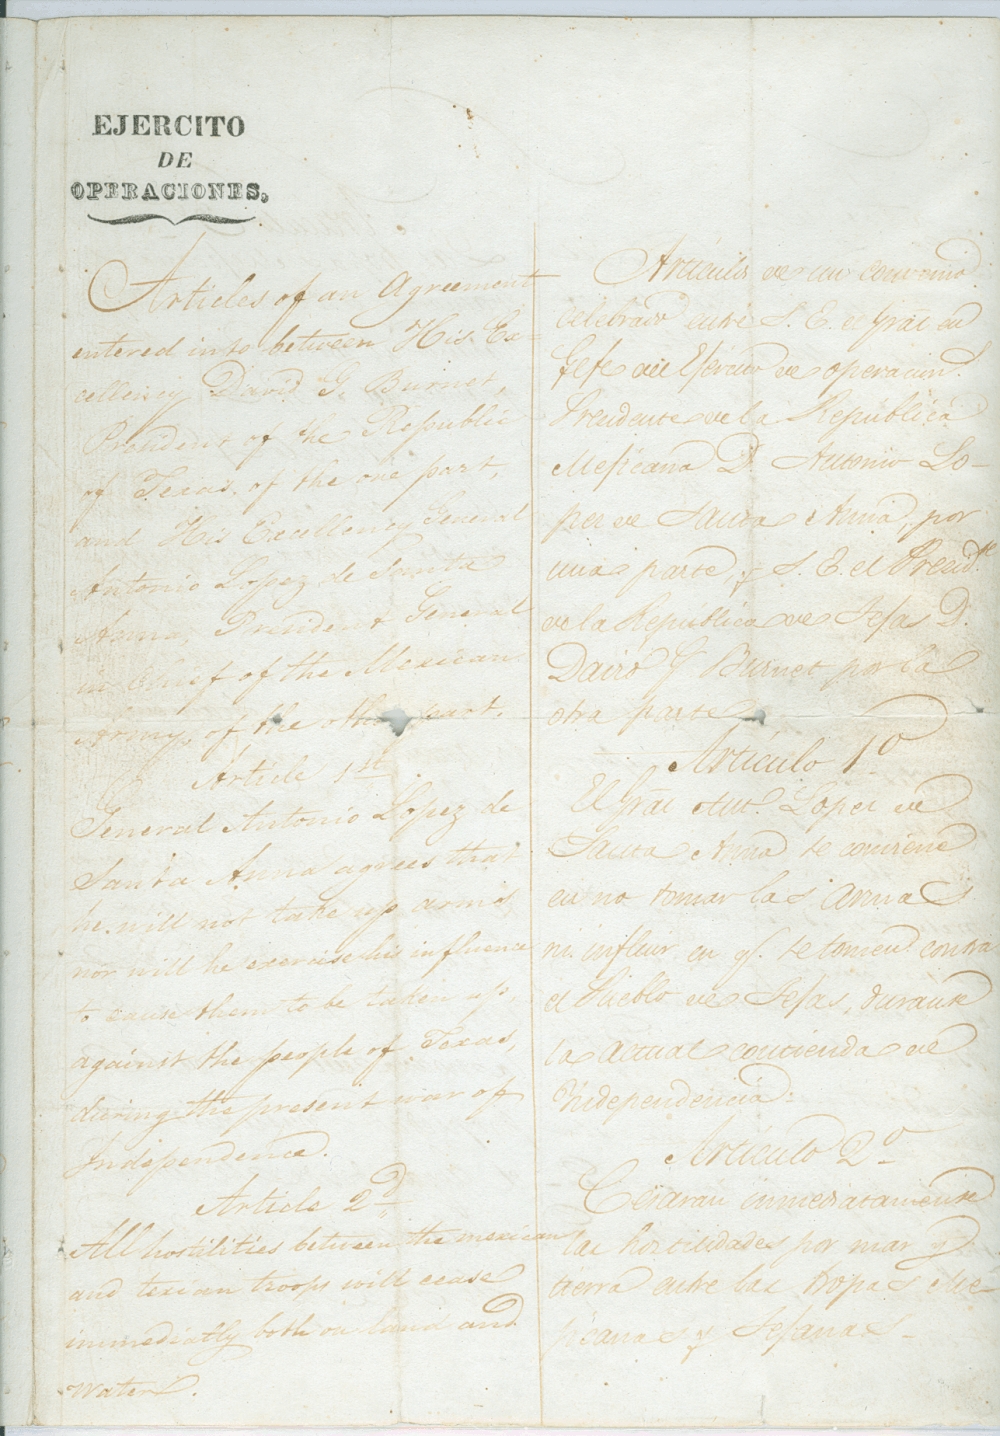 EJERCITO
DE
OPERACIONES,
Articles of an Agreement
entered into between His Ex-
cellency David G. Burnet,
President of the Republic
of Texas, of the one part,
and His Excellency General
Antonio Lopez de Santa
Anna, President General
in Chief of the Mexican
Army, of the other part.
Article 1st
General Antonio Lopez de
Santa Anna agrees that
he will not take up arms,
nor will he exercise his influence
to cause them to be taken up,
against the people of Texas,
during the present war of
Independence.
Article 2d
All hostilities between the mexican
and texian troops will cease
immediatly both on land and
water.
Artículos de un convenio
celebrado entre S. E. el Gral en
Gefe del Ejército de operacion.s
Presidente de la República
Mejicana D. Antonio Lo-
pez de Santa Anna, por
una parte, y S. E. el Presid.te
de la Republica de Tejas D.
David G Burnet por la
otra parte
Artículo 1o
El Gral Ant. Lopez de
Santa Anna se conviene
en no tomar las armas
ni influir en q. se tomen contra
el Pueblo de Tejas, durante
la actual contienda de
Independencia.
Artículo 2o
Cesaran inmediatamente
las hostilidades por mar y
tierra entre las tropas Me-
jicanas y Tejanas-